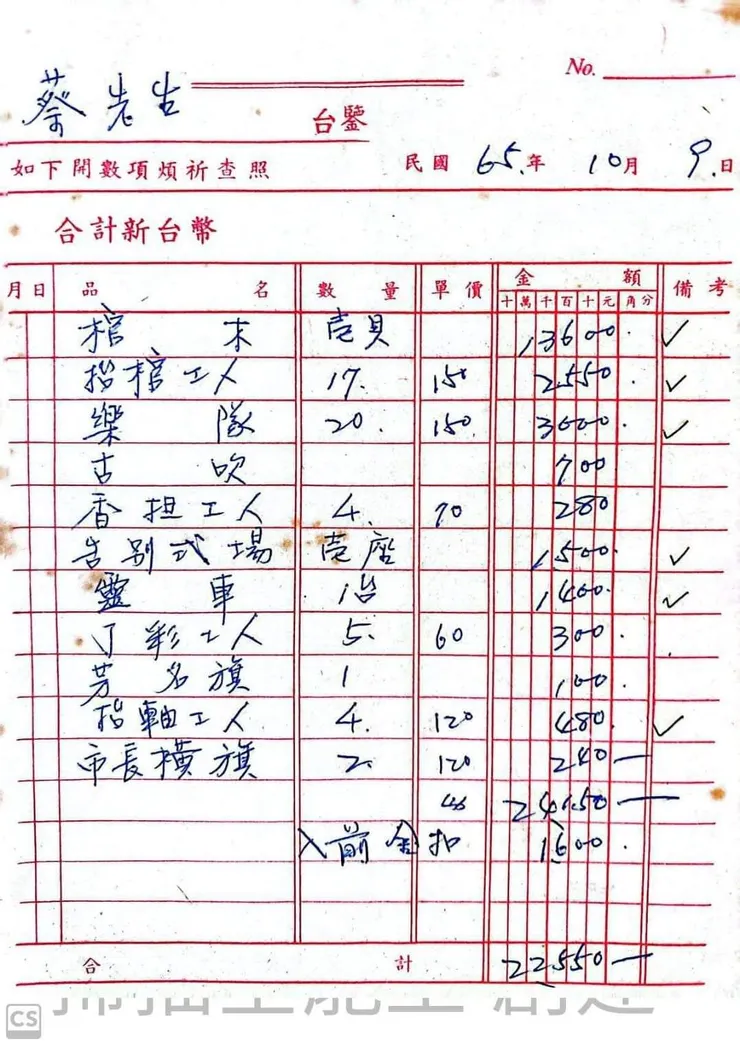 No.
蔡先生 台鑒
如下開數項煩祈查照 民國 65.年 10月 9.日
合計新台幣
月日 品名 數量 單價 金額 備考
十萬千百十元角分
棺木 壱具 13600. ✓
抬棺工人 17. 150 2550. ✓
樂隊 20. 150. 3000. ✓
古吹 700
香担工人 4. 70 280
告别式場 壱座 1500. ✓
靈車 1台 1400. ✓
丁彩工人 5. 60 300.
芳名旗 1 100.
抬軸工人 4. 120 480. ✓
市長横旗 2. 120 240—
24150—
入前金扣 1600.
合計 22550—
CS